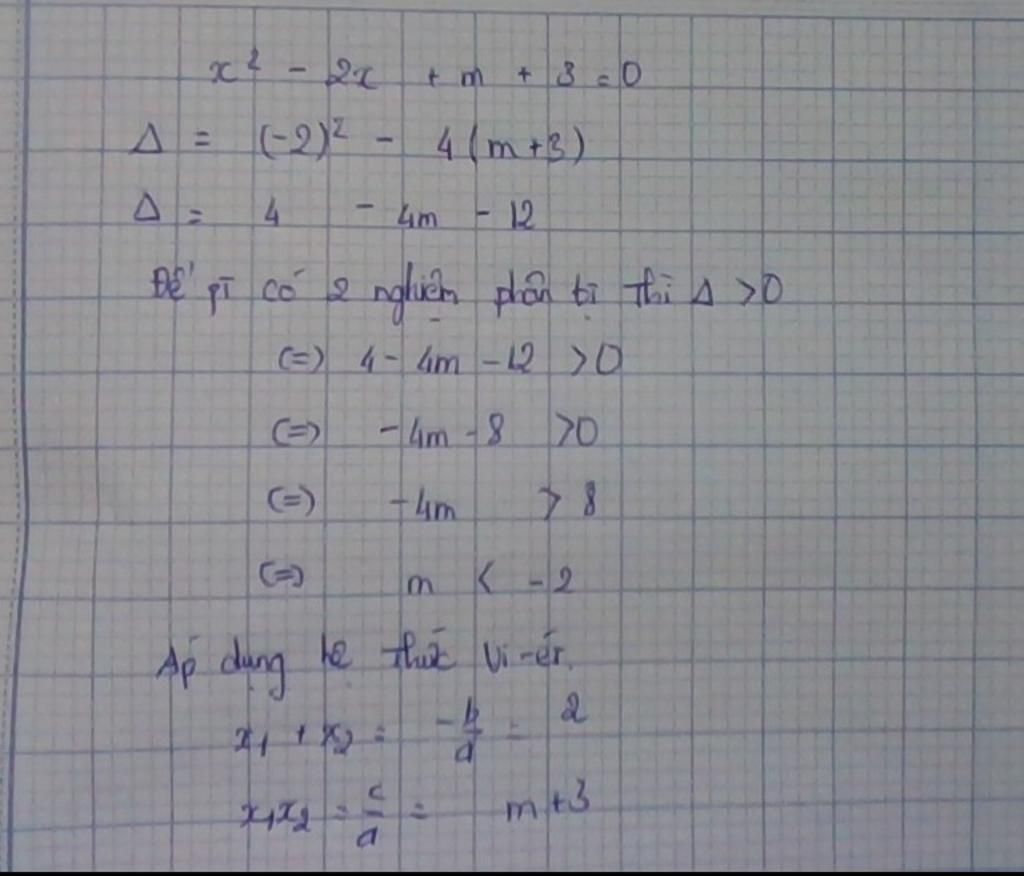 x² - 2x + m + 3 = 0
Δ = (-2)² - 4(m+3)
Δ = 4 - 4m - 12
Để pt có 2 nghiệm phân bị thì Δ > 0
(=) 4 - 4m - 12 > 0
(=) -4m - 8 > 0
(=) -4m > 8
(=) m < -2
Áp dụng hệ thức Vi-ét.
x₁ + x₂ = -b/a = 2
x₁x₂ = c/a = m+3